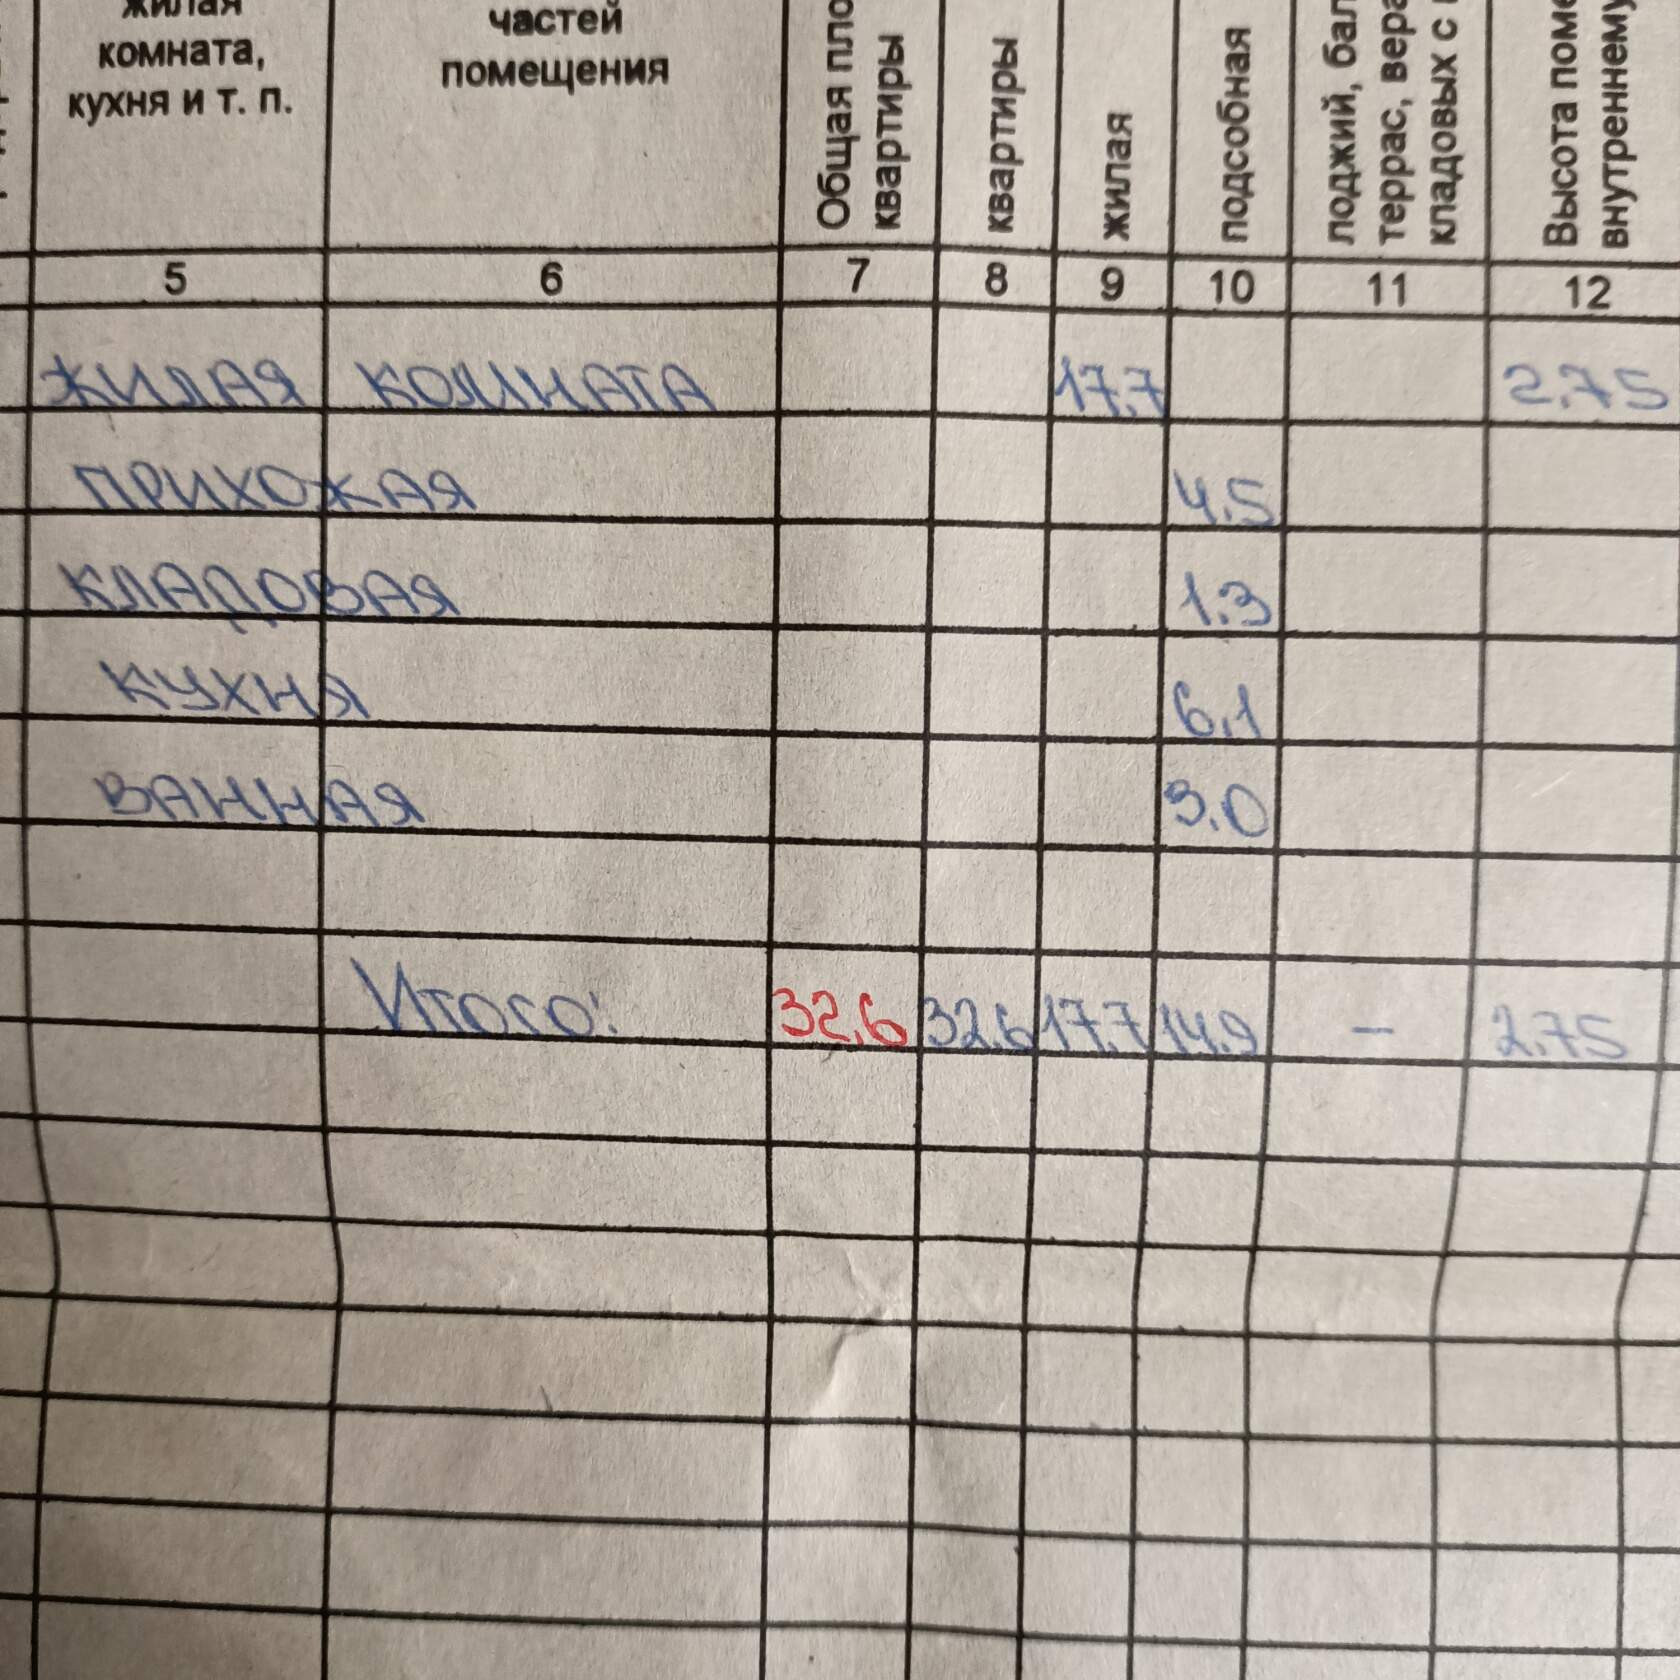 жилая
комната,
кухня и т. п.
частей
помещения
Общая
квартиры
квартиры
жилая
подсобная
лоджий,
террас,
кладовых с
Высота
внутреннему
5 6 7 8 9 10 11 12
ЖИЛАЯ КОМНАТА 17,7 2.75
ПРИХОЖАЯ 4.5
КЛАДОВАЯ 1.3
КУХНЯ 6,1
ВАННАЯ 3.0
Итого: 32,6 32.6 17.7 14.9 – 2.75